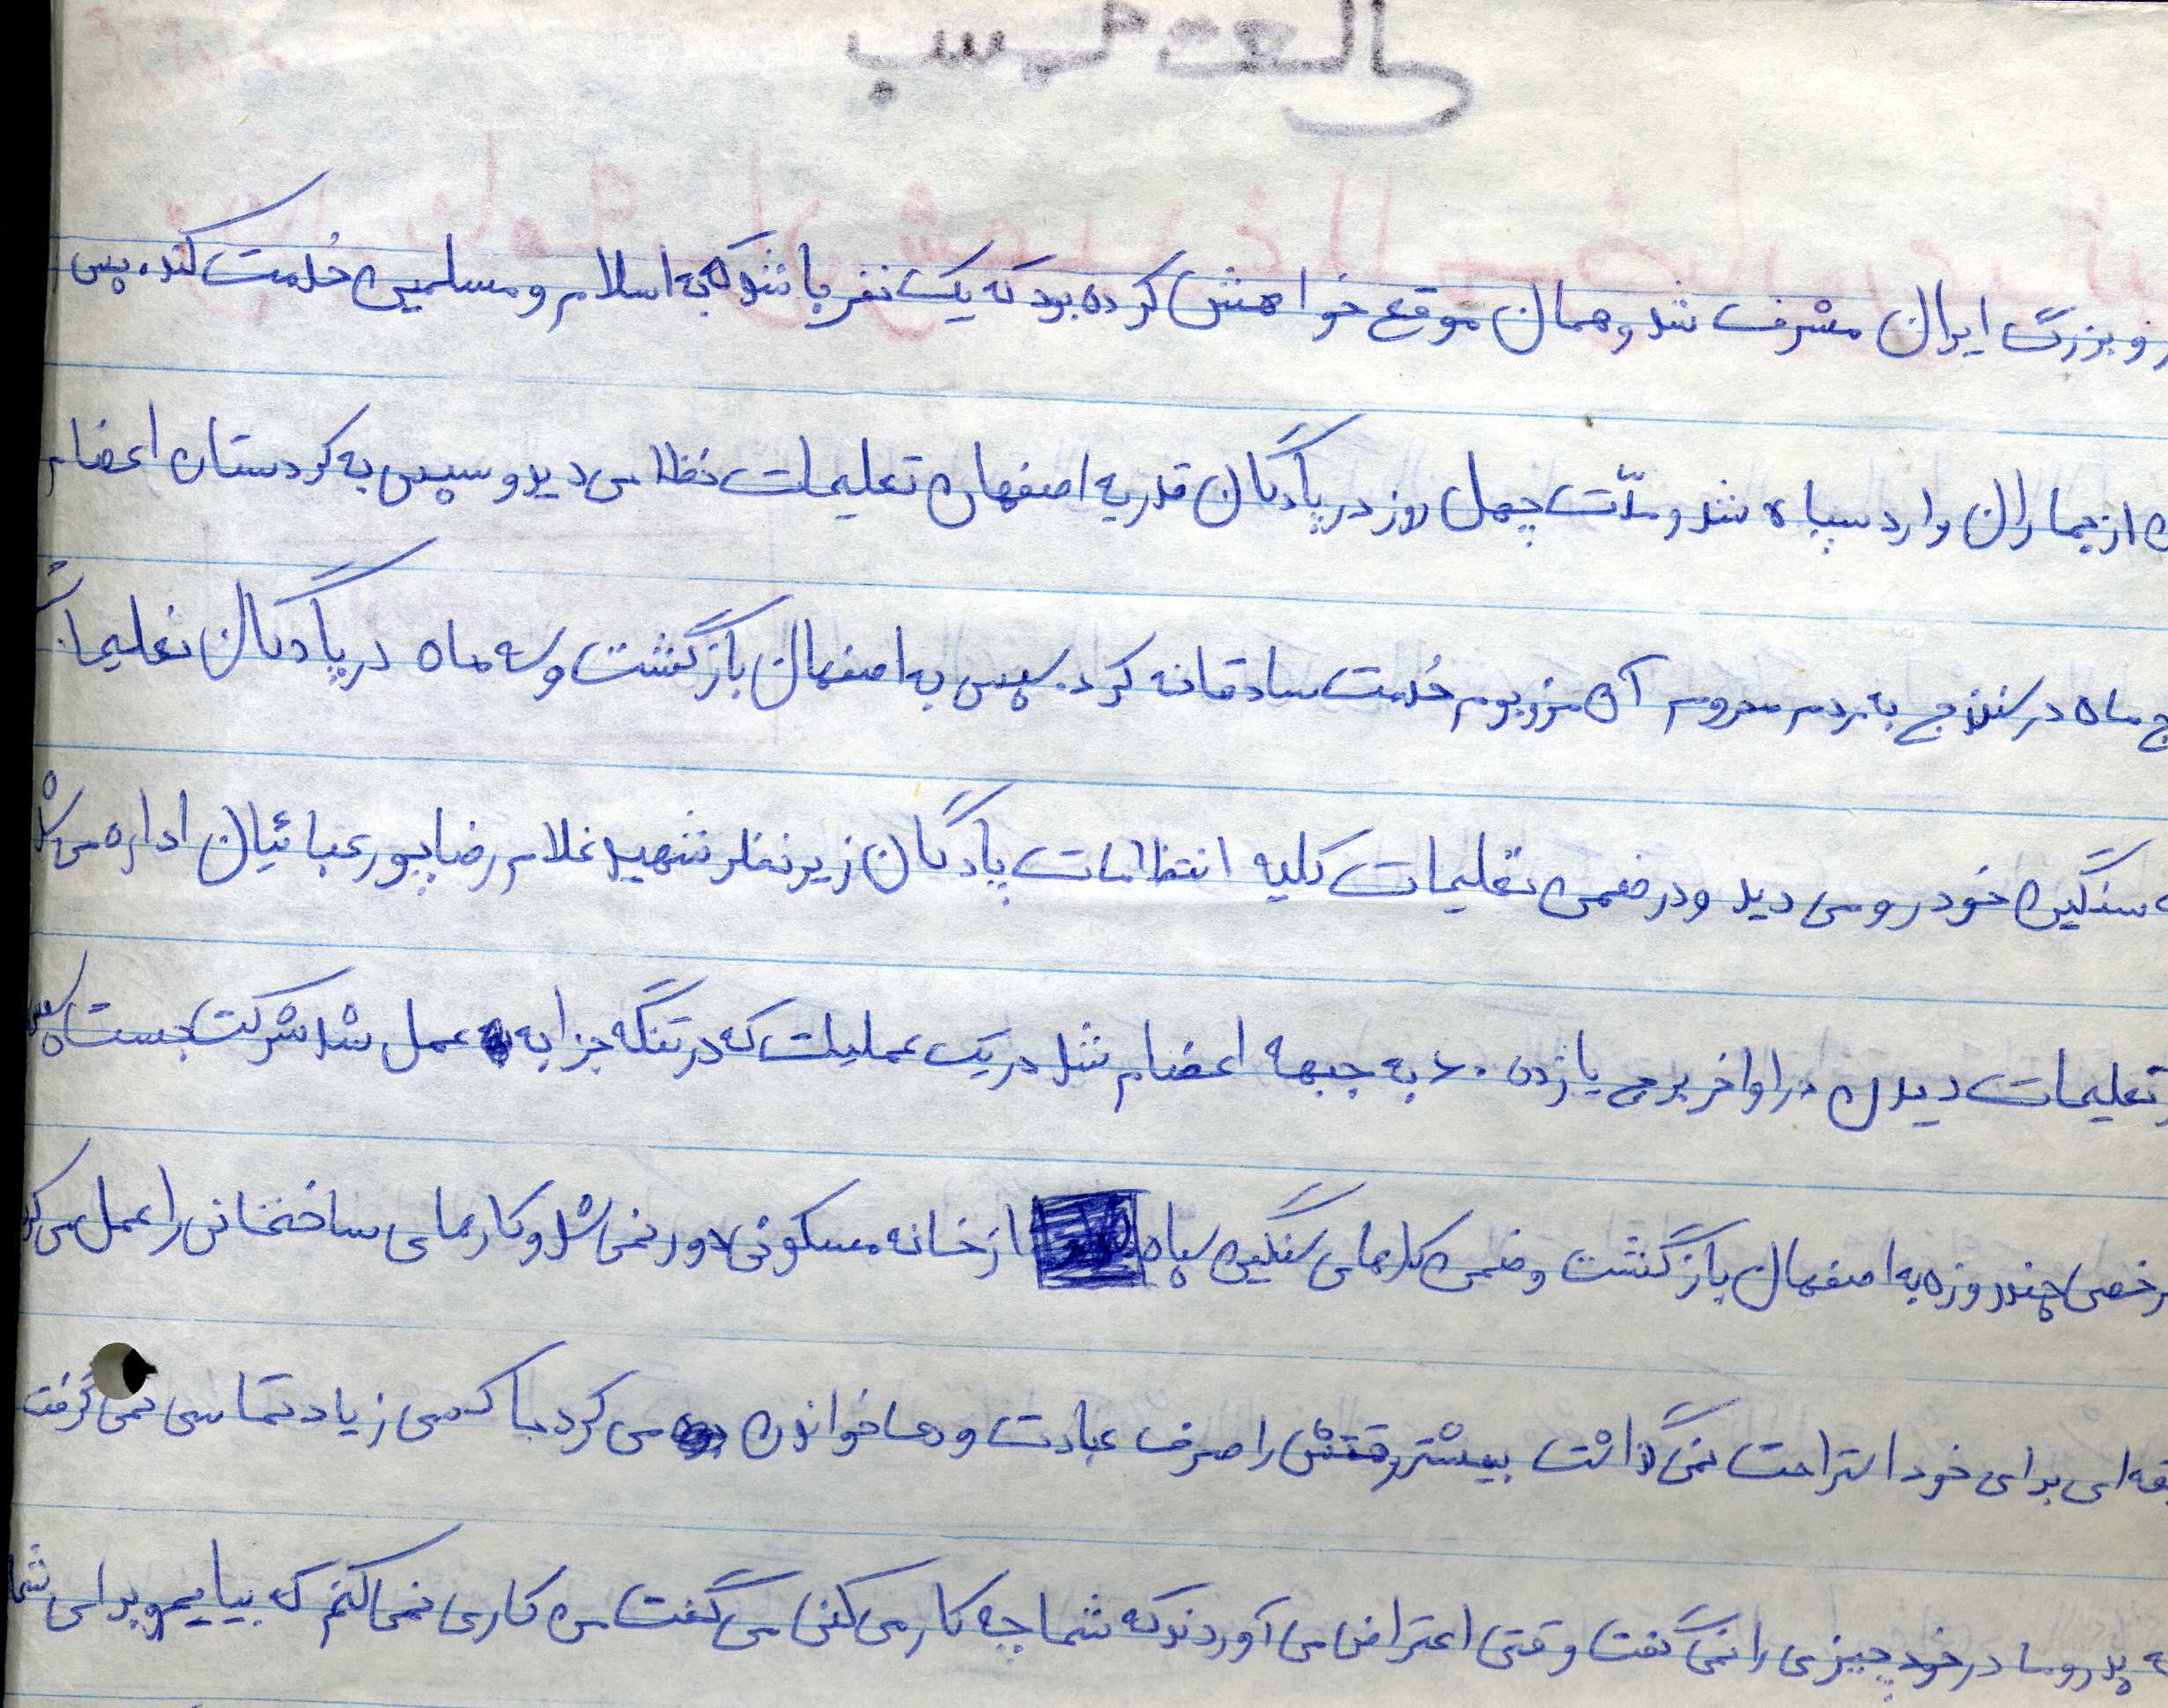 و بزرگ ایران مشرف شد و همان موقع خواهش کرده بود که یک نفر باشد که به اسلام و مسلمین خدمت کند. پس
از جماران وارد سپاه شد و مدّت چهل روز در پادگان قدریه اصفهان تعلیمات نظامی دید و سپس به کردستان اعضام
ماه در سنندج به مردم محروم آن مرزبوم خدمت صادقانه کرد. سپس به اصفهان بازگشت و سه ماه در پادگان تعلیمات
سنگین خودرو می دید و در ضمن تعلیمات کلیه انتظامات پادگان زیر نظر شهید غلامرضا پورعبائیان اداره می شد
تعلیمات دیدن در اواخر برج یازده ۶۰ به جبهه اعضام شد در یک عملیات که در تنگه جزابه به عمل شد شرکت جست سپس
چند روزه به اصفهان بازگشت و ضمن کارهای سنگین سپاه از خانه مسکونی دور نمی شد و کارهای ساختمانی را عمل می کرد
برای خود استراحت نمی گذاشت بیشتر وقتش را صرف عبادت و دعا خواندن می کرد با کسی زیاد تماسی نمی گرفت
پدر و مادر خود چیزی را نمی گفت وقتی اعتراض می آوردند که شما چه کار می کنی می گفت من کاری نمی کنم که بیایم و برای شما